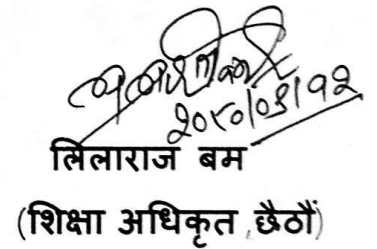 २०८०।०९।१२
लिलाराज बम
(शिक्षा अधिकृत छैठौं)